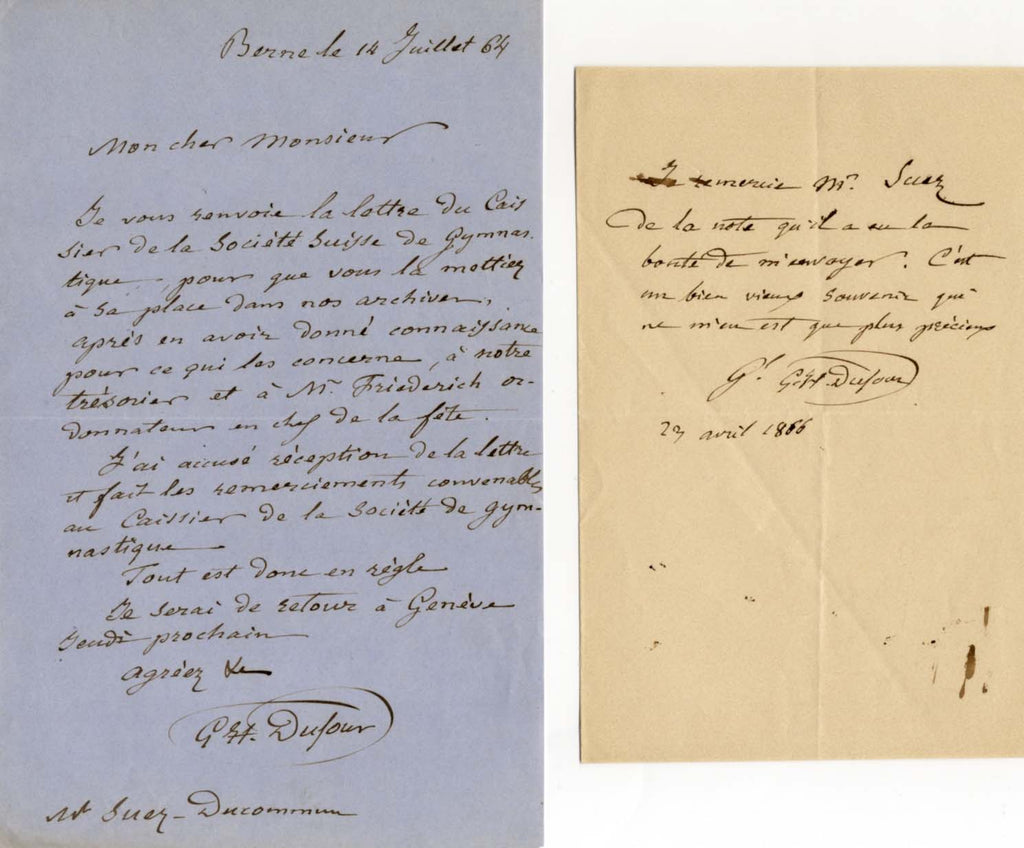 Berne le 14 Juillet 64
Mon cher Monsieur
Je vous renvoie la lettre du Cais
sier de la Société Suisse de Gymnas-
tique, pour que vous la mettiez
à sa place dans nos archives,
après en avoir donné connaissance
pour ce qui les concerne, à notre
trésorier et à Mr. Friederich or-
donnateur en chef de la fête.
J'ai accusé réception de la lettre
et fait les remerciements convenables
au Caissier de la Société de gym-
nastique
Tout est donc en règle
Je serai de retour à Genève
Jeudi prochain
agréez &c
G H. Dufour
Mr Suez-Ducommun
Je remercie Mr. Suez
de la note qu'il a eu la
bonté de m'envoyer. C'est
un bien vieux souvenir qui
ne m'en est que plus précieux
Gl. G H Dufour
23 avril 1866